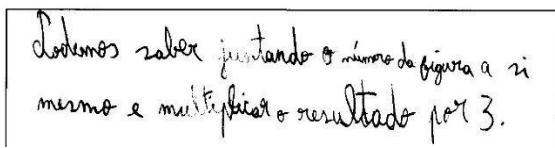 Podemos saber juntando o número da figura a si
mesmo e multiplicar o resultado por 3.